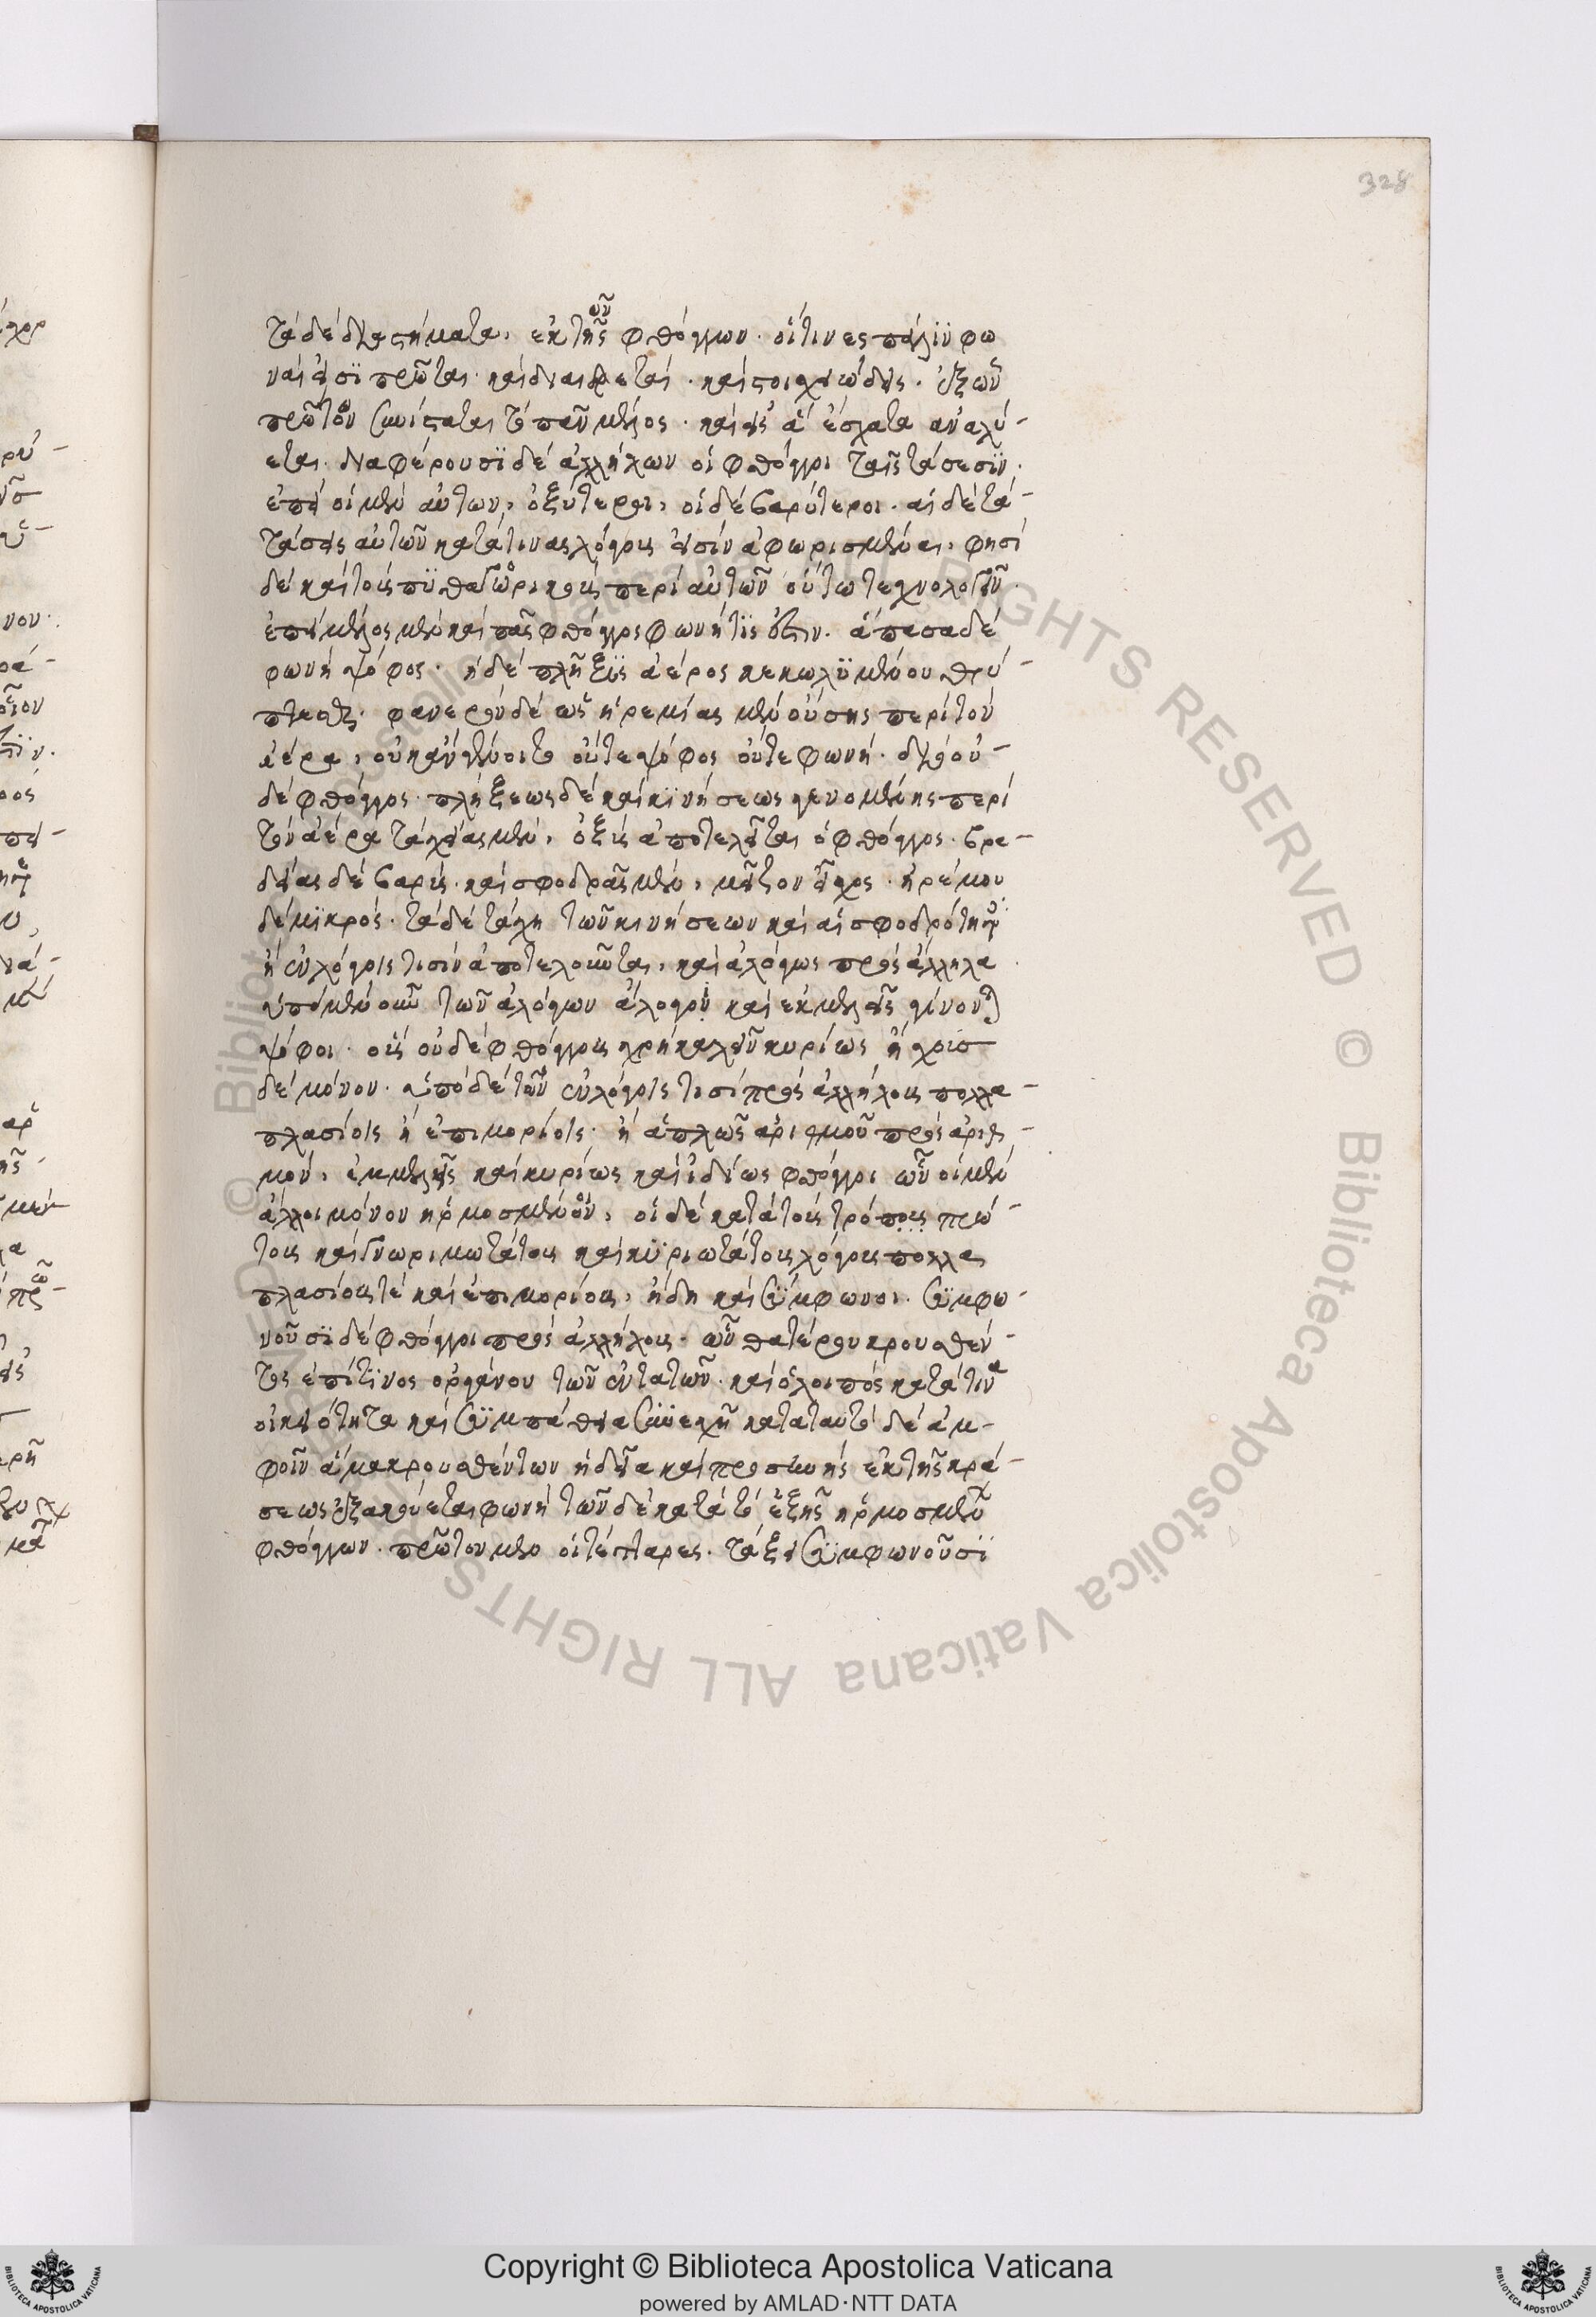 328
τὰ δὲ διαστήματα, ἐκ τῆς ῶν φθόγγων· οἵτινες πάλϊν φω
ναί εἰσϊ πρῶται· καὶ διαιρεταί· καὶ στοιχειώδεις· ἐξ ὧν
πρῶτον συνίσταται τὸ πᾶν μέλος· καὶ εἰς ἃ ἔσχατα ἀναλύ-
εται· διαφέρουσϊ δὲ ἀλλήλων οἱ φθόγγοι ταῖς τάσεσϊν·
ἐπεὶ οἱ μὲν αὐτων, ὀξύτεροι, οἱ δὲ βαρύτεροι· αἱ δὲ τά-
τάσεις αὐτῶν κατά τινας λόγους εἰσὶν ἀφωρισμέναι, φησὶ
δὲ καὶ τοὺς πϋθαγωρικοὺς περὶ αὐτῶν οὕτω τεχνολογεῖν·
ἐπεὶ μέλος μὲν καὶ πᾶς φθόγγος φωνή τϊς ἐστιν· ἅπασα δὲ
φωνὴ ψόφος· ἡ δὲ πλῆξϊς ἀέρος κεκωλϋμένου θρύ-
πτεσθαι· φανερὸν δὲ ὡς ἠρεμίας μὲν οὔσης περὶ τὸν
ἀέρα, οὐκ ἂν γένοιτο οὔτε ψόφος οὔτε φωνή· διὸ οὐ-
δὲ φθόγγος· πλήξεως δὲ καὶ κϊνήσεως γενομένης περὶ
τὸν ἀέρα ταχείας μὲν, ὀξὺς ἀποτελεῖται ὁ φθόγγος· βρα-
δείας δὲ βαρύς· καὶ σφοδρᾶς μὲν, μεῖζον ἦχος· ἠρέμου
δὲ μϊκρός· τὰ δὲ τάχη τῶν κινήσεων καὶ αἱ σφοδρότητες
ἢ ἐν λόγοις τισὶν ἀποτελοῦνται, καὶ ἀλόγως πρὸς ἄλληλα
ὑπὸ μὲν οὖν τῶν ἀλόγων ἄλογοι καὶ ἐκμελεῖς γίνονται
ψόφοι· οὓς οὐδὲ φθόγγους χρὴ καλεῖν κυρίως ἤχους
δὲ μόνον· ὑπὸ δὲ τῶν ἐν λόγοις τισὶ πρὸς ἀλλήλους πολλα-
πλασίοις ἢ ἐπιμορίοις· ἢ ἁπλῶς ἀριθμοῦ πρὸς ἀριθ-
μόν, ἐμμελεῖς καὶ κυρίως καὶ ἰδίως φθόγγοι ὧν οἱ μὲν
ἄλλοι μόνον ἡρμοσμένον, οἱ δὲ κατὰ τοὺς τρόπους πρώ-
τους καὶ γνωριμωτάτους καὶ κϋριωτάτους λόγους πολλα
πλασίους τὲ καὶ ἐπιμορίους, ἤδη καὶ σϋμφωνοι· σϋμφω-
νοῦσϊ δὲ φθόγγοι πρὸς ἀλλήλους· ὧν θατέρου κρουσθέν-
τος ἐπί τϊνος ὀργάνου τῶν ἐντατῶν· καὶ ὁ λοιπὸς κατά τινα
οἰκειότητα καὶ σϋμπάθεια συνεχῆ κατα ταὐτὸ δὲ ἀμ-
φοῖν ἅμα κρουσθέντων ἡδεῖα καὶ προσηνὴς ἐκ τῆς κρά-
σεως ἐξακούεται φωνὴ τῶν δὲ κατὰ τὸ ἑξῆς ἡρμοσμένων
φθόγγων· πρῶτον μὲν οἱ τέτταρες· τάξει σϋμφωνοῦσϊ